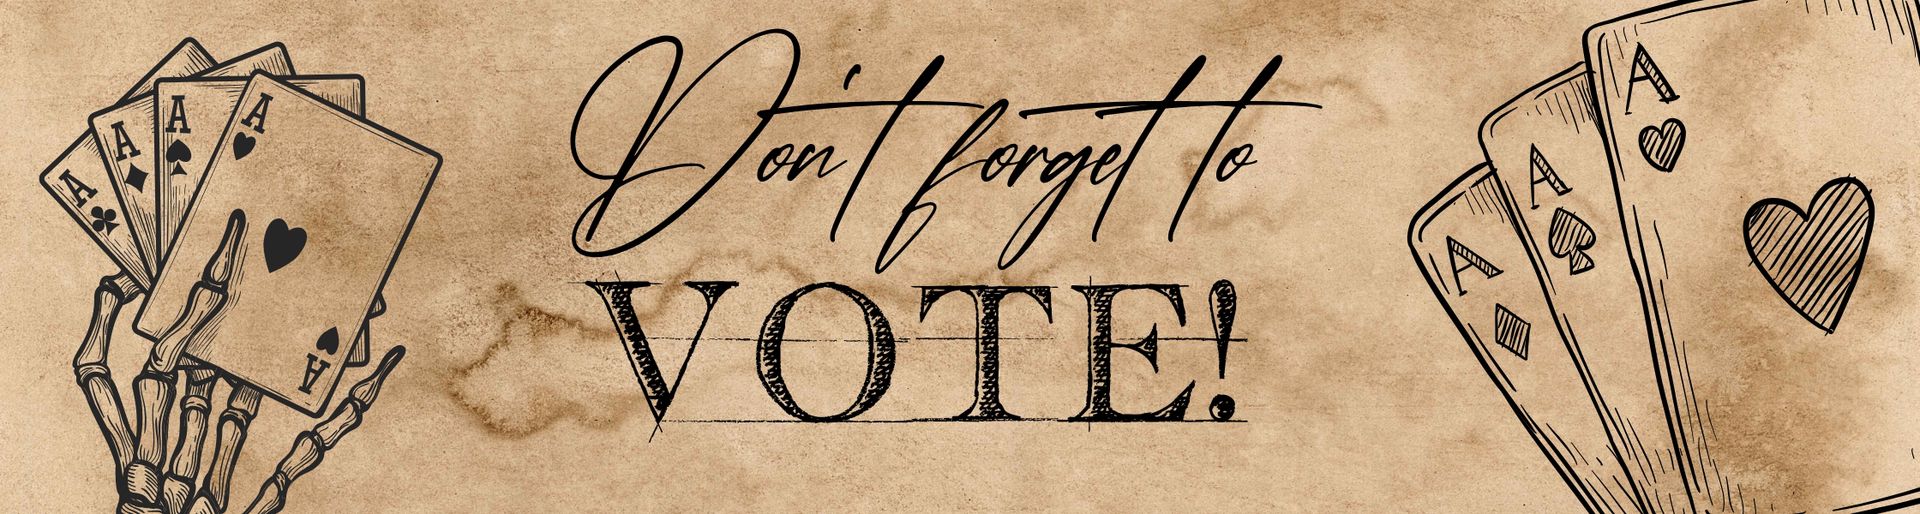 Don't forget to
VOTE!
A
A
A
A
A
A
A
A